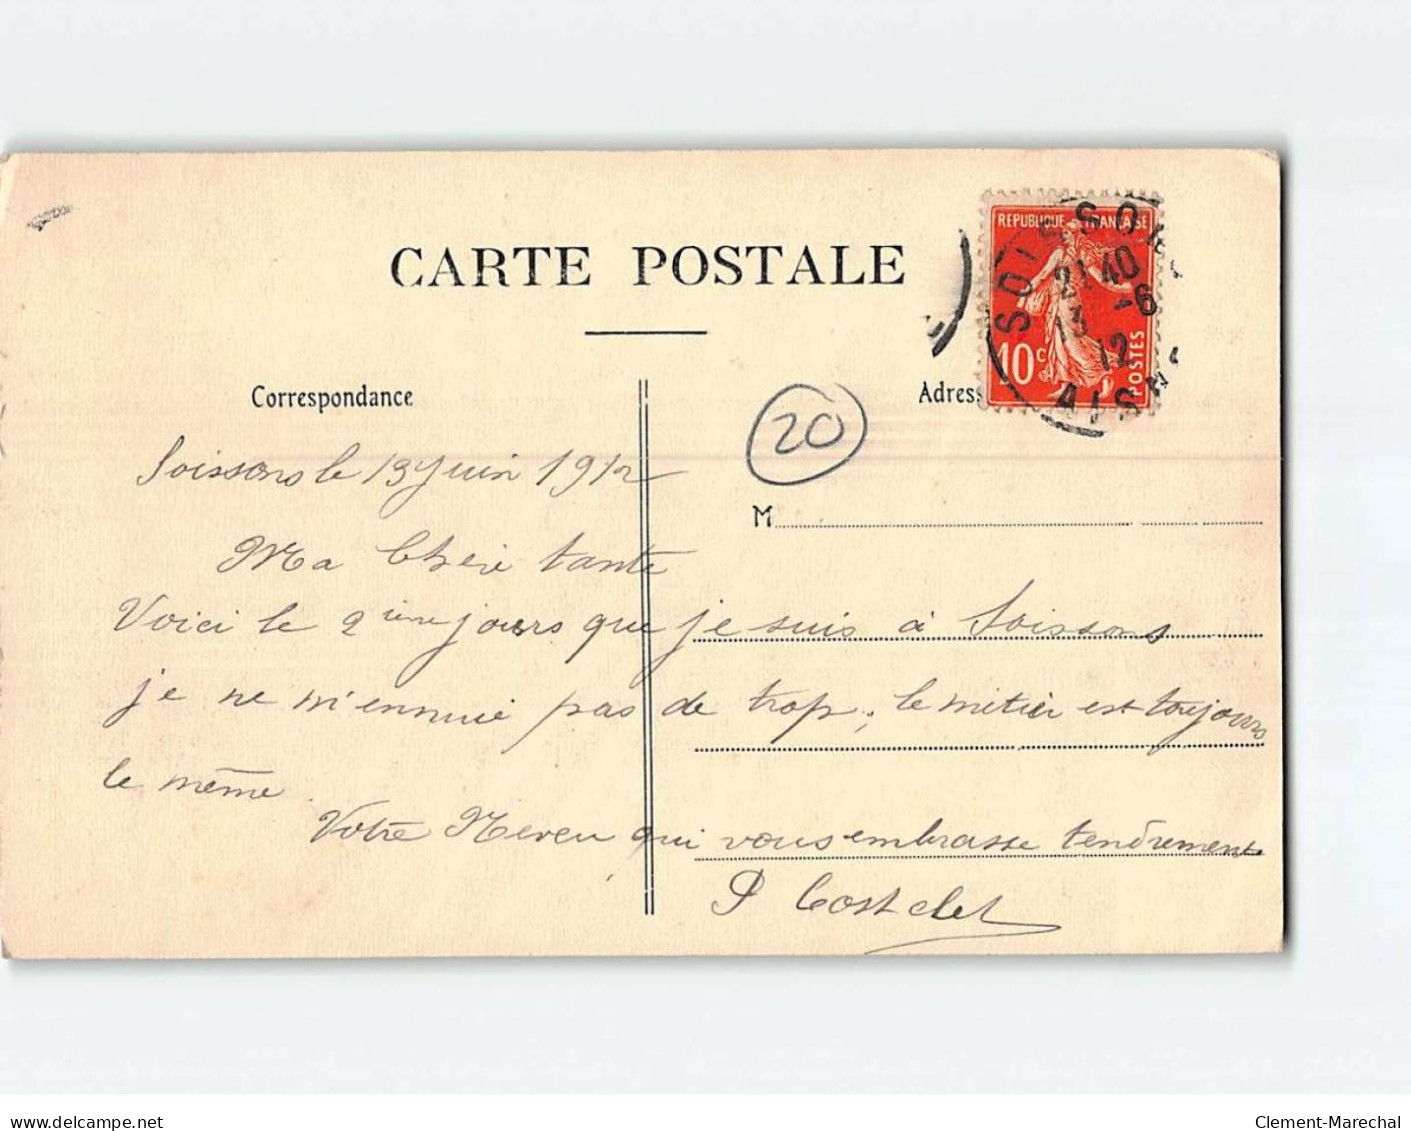 CARTE POSTALE
REPUBLIQUE FRANCAISE
10c
POSTES
SOISSON
21 40
13 -6
12
AISN
Correspondance
Adress
20
Soissons le 13 juin 1912
M
Ma Chère tante
Voici le 2ième jours que je suis à Soissons
je ne m'ennuie pas de trop, le métier est toujours
le même
Votre Neveu qui vous embrasse tendrement
P Costelet
delcampe.net
Clement-Marechal